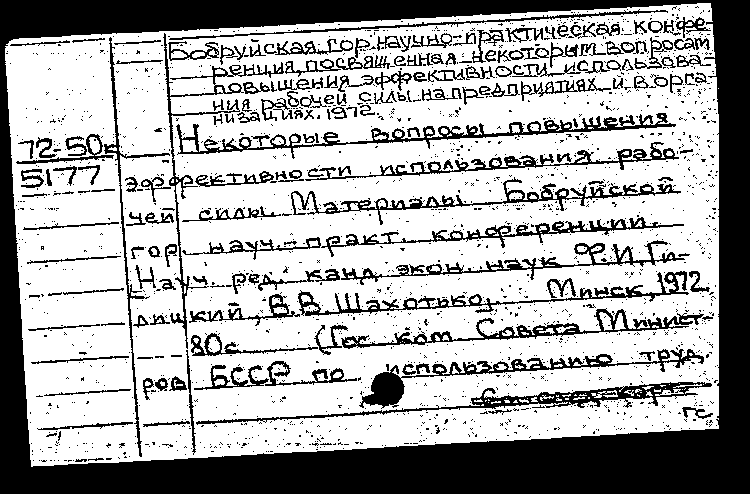 Бобруйская гор. научно-практическая конфе-
ренция, посвященная некоторым вопросам
повышения эффективности использова-
ния рабочей силы на предприятиях и в орга
низациях. 1972.
72-50к
5177
Некоторые вопросы повышения
эффективности использования рабо-
чей силы. Материалы Бобруйской
гор. науч.-практ. конференции.
Науч. ред. канд. экон. наук Ф.И.Ги-
лицкий, В.В.Шахотько. Минск, 1972.
80с (Гос ком Совета Минист-
ров БССР по использованию труд.
См. след. карт.
гс